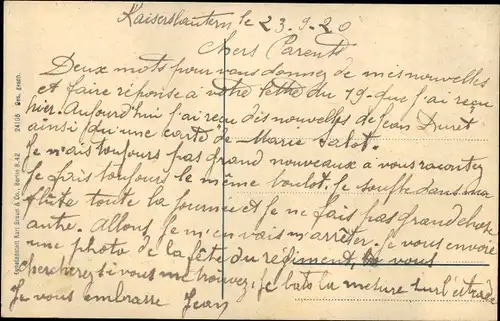 Kaiserslautern le 23-9-20
Chers Parents
Deux mots pour vous donner de mes nouvelles
et faire réponse à votre lettre du 19 que j'ai reçu
hier. Aujourd'hui j'ai reçu des nouvelles de Jean Duret
ainsi qu'une carte de Marie Jalot.
Je n'ais toujours pas grand nouveaux a vous raconter
Je fais toujours le même boulot. Je souffle dans ma
flûte toute la journée et je ne fais pas grand chose
autre. Allons je m'en vais m'arrêter. Je vous envoie
une photo de la fête du régiment, vous
chercherez si vous me trouvez, je bats la mesure sur l'estrade
Je vous embrasse Jean
Kunstanstalt Karl Braun & Co., Berlin S. 42 24106 Ges. gesch.